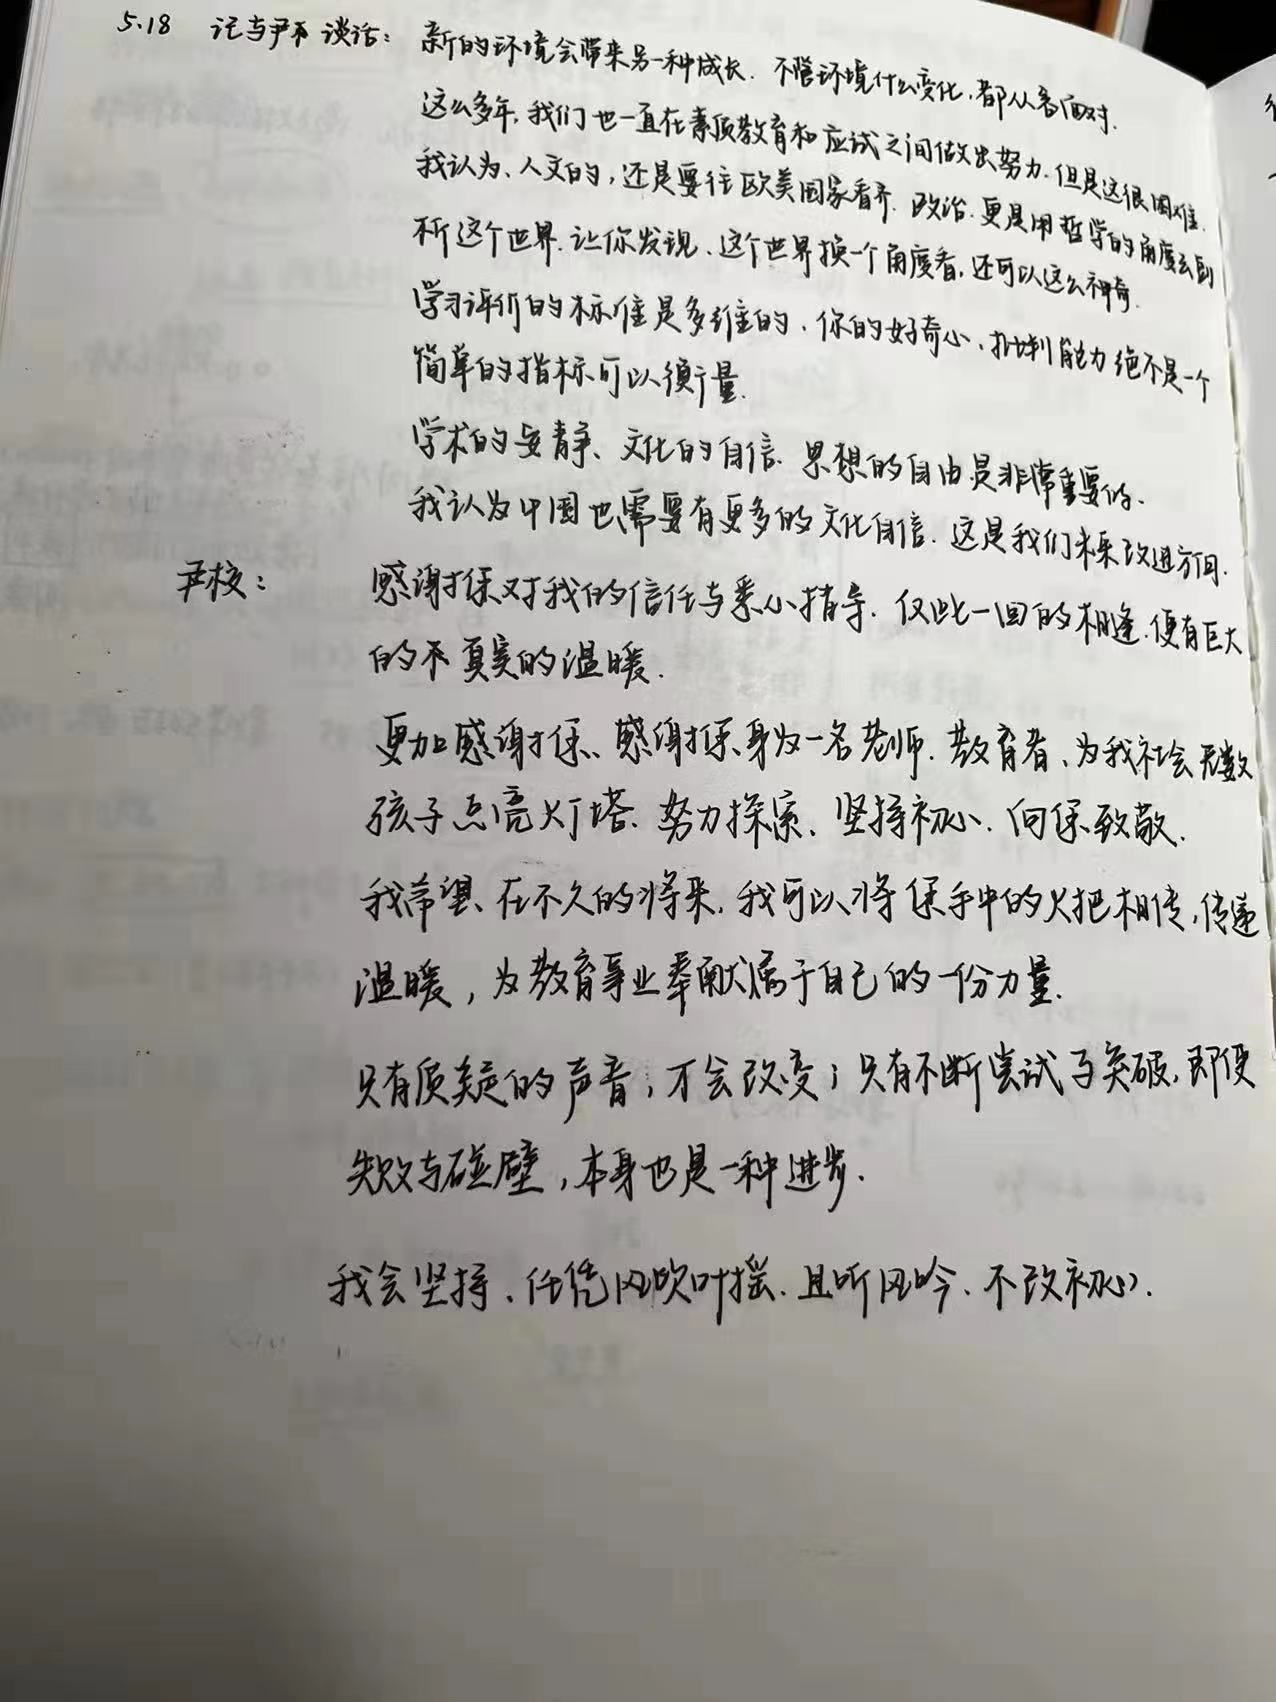 5.18 记与尹不谈话：新的环境会带来另一种成长．不管环境什么变化，都从容面对．
这么多年，我们也一直在素质教育和应试之间做出努力．但是这很困难．
我认为、人文的，还是要往欧美国家看齐．政治．更是用哲学的角度去剖
析这个世界．让你发现、这个世界换一个角度看，还可以这么神奇．
学习评价的标准是多维的、你的好奇心、批判能力绝不是一个
简单的指标可以衡量．
学术的安静、文化的自信．思想的自由是非常重要的．
我认为中国也需要有更多的文化自信．这是我们未来改进方向．
尹校：感谢您对我的信任与悉心指导．仅此一回的相逢．便有巨大
的不真实的温暖．
更加感谢您、感谢您身为一名老师．教育者、为我社会无数
孩子点亮灯塔．努力探索、坚持初心、向您致敬．
我希望、在不久的将来，我可以将您手中的火把相传，传递
温暖，为教育事业奉献属于自己的一份力量．
只有质疑的声音，才会改变；只有不断尝试与突破，即便
失败与碰壁，本身也是一种进步．
我会坚持、任凭风吹叶摇．且听风吟、不改初心．